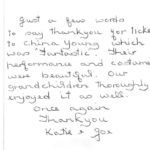 Just a few words
to say thankyou for ticket
to China Young which
was Funtastic. Their
performance and costume
were beautiful. Our
grandchildren thoroughly
enjoyed it as well.
Once again
Thankyou
Katie & Joe